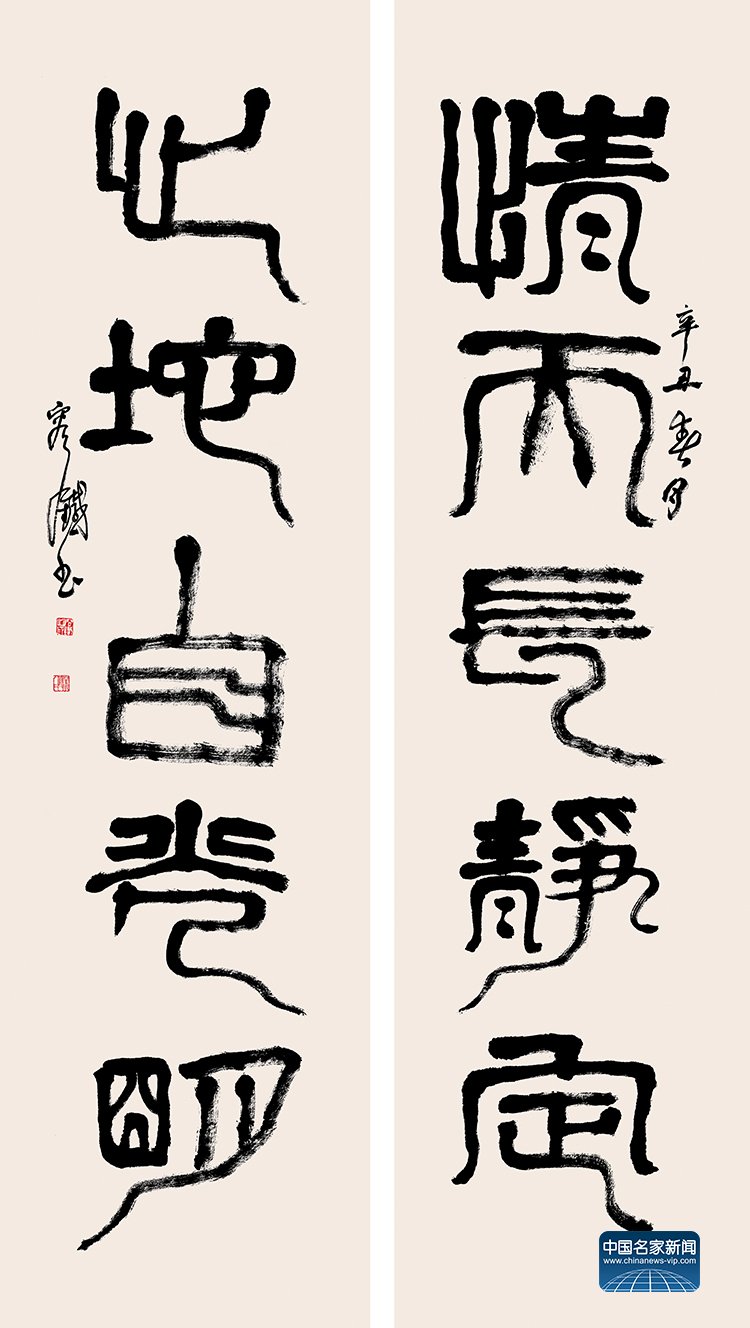 情天長靜定
辛丑春月
心地自光明
容鐵书
中国名家新闻
www.chinanews-vip.com